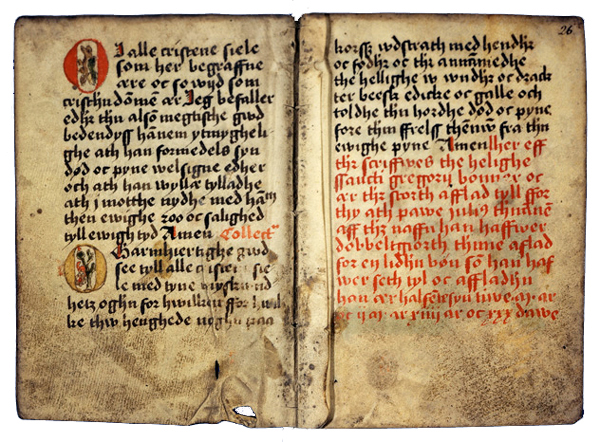 O I alle cristene siele
som her begraffne
ære oc so wijd som
cristhndåmē ær Jeg befaller
edhr thn alsō megtishe gwd
bedendyss hånem ytmygheli
ghe ath han formedels syn
død oc pyne welsigne edher
och ath han wyllæ tylladhe
ath j motthe nydhe med hām
then ewighe roo oc salighed
tyll ewigh tyd Amen Collect
O barmhiertighe gwd
see tyll alle cristene sie
le med tyne
hetz oghn for hwilken ffor
ke thw heughede
26
korsz wdstrath med hendhr
oc fødhr oc thr annāmedhe
the hellighe w wndhr oc drack
ter beesk edicke oc galle och
toldhe thn hordhe død oc pyne
fore thin ffrelss thēnw fra thn
ewighe pyne Amen her eff
thr scriffwes the helighe
ssancti gregorij bønner oc
ær thr storth afflad tyll ffor
thy ath pawe julius thnånē
aff thz naffn han haffwer
debbeltgiorth thinne aflad
for en lidhn bøn sō han haf
wer seth tyl oc affladhn
han ær halfsēesyn tuwe ar
oc ij ar xiiij ar oc xxx dawe